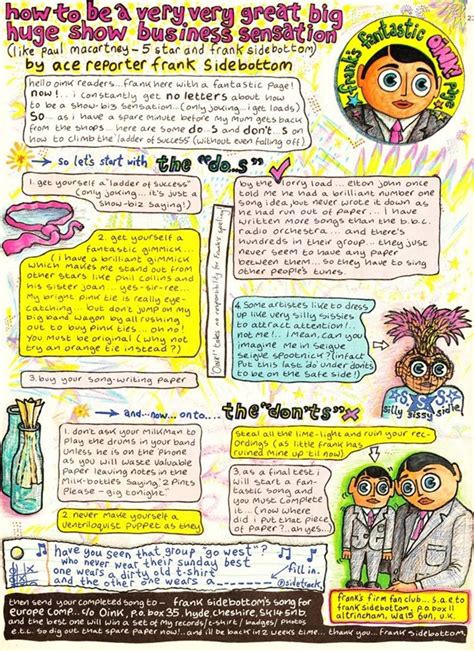 how to be a very very great big
huge show business sensation
(like paul macartney - 5 star and frank sidebottom)
by ace reporter frank sidebottom
frank's fantastic
OiNK! page
hello oink readers...frank here with a fantastic page!
now!... i constantly get no letters about how
to be a show-biz sensation...(only joking..i get loads)
So... as i have a spare minute before my mum gets back
from the shops... here are some do...S and don't...s on
how to climb the 'ladder of success' (without even falling off)
→ so let's start with the "do...s"
1. get yourself a "ladder of success"
(only joking... it's just a
show-biz saying!)
2. get yourself a
fantastic gimmick....
(i have a brilliant gimmick
which makes me stand out from
other stars like phil collins and
his sister joan... yes-sir-ree...
My bright pink tie is really eye-
catching... but don't jump on my
big band wagon by all rushing
out to buy pink ties... oh no
You must be original (why not
try an orange tie instead?)
3. buy your song-writing paper
by the lorry load... elton john once
told me he had a brilliant number one
song idea, but never wrote it down as
he had run out of paper... I have
written more songs than the b.b.c.
radio orchestra.... and there's
hundreds in their group... they just
never seem to have any paper
between them... so they have to sing
other people's tunes.
Oink! takes no responsibility for Frank's spelling
4. Some artistes like to dress
up like very silly sissies
to attract attention!..
not me!... I mean, can you
imagine me in seigue
seigue spootnick? (infact
Put this last do under donts
to be on the safe side!)
S.S.S.
silly sissy sidie
→ and...now...onto... the "don'ts" x
1. don't ask your milkman to
play the drums in your band
unless he is on the phone
as you will waste valuable
paper leaving notes in the
Milk-bottles saying '2 Pints
Please - gig tonight'
2. never make yourself a
ventriloquist puppet as they
steal all the lime-light and ruin your rec-
ordings (as little frank has
ruined mine up 'til now)
3. as a final test i
will start a fan-
tastic song and
you must complete
it...(now where
did i put that piece
of paper?..ah yes..)
have you seen that group "go west"?
who never wear their sunday best
one wears a dirty old t-shirt
and the other one wears a
fill in.
@sidetrack
then send your completed song to - frank sidebottom's song for
europe comp... c/o Oink, p.o. box 35, hyde cheshire, SK14 5nb,
and the best one will win a set of My records/t-shirt/badges/photos
e.t.c. so dig out that spare paper now...and i'll be back in 2 weeks time... thank you.
frank's firm fan club... s.a.e to
frank sidebottom, p.o. box 11
altrincham, wa15 6un, u.k.